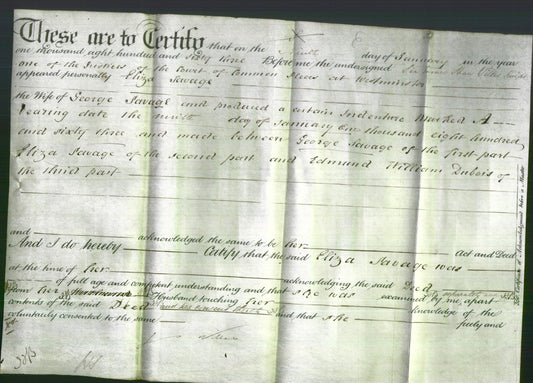 These are to Certify that on the Ninth day of January in the year
one thousand eight hundred and Sixty three Before me the undersigned Sir James Shaw Willes Knight
one of the Justices of the Court of Common Pleas at Westminster
appeared personally Eliza Savage
the Wife of George Savage and produced a certain Indenture Marked A
bearing date the ninth day of January One thousand eight hundred
and sixty three and made between George Savage of the first part
Eliza Savage of the second part and Edmund William Dubois of
the third part
and acknowledged the same to be her Act and Deed
And I do hereby Certify that the said Eliza Savage was
at the time of her acknowledging the said Deed
of full age and competent understanding and that she was examined by me, apart
from her Husband touching her knowledge of the
contents of the said Deed and that she freely and
voluntarily consented to the same